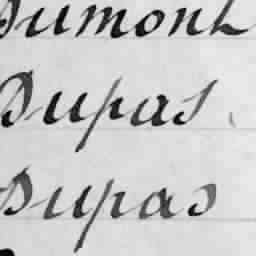 Dumont
Dupas
Dupas